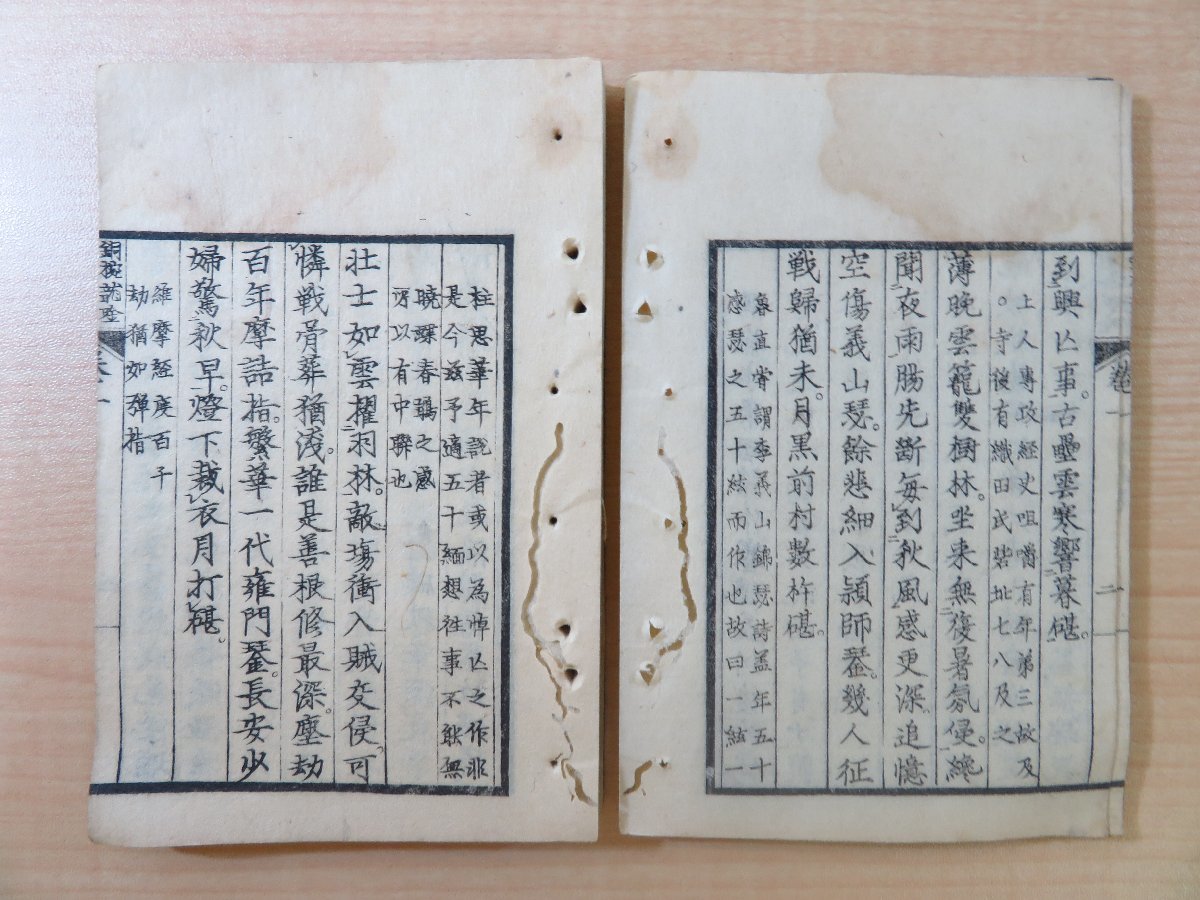 到興亾事。古壘雲寒響暮碪。
上人專攻經史咀嚼有年第三故及
。寺後有織田氏砦址七八及之
薄晚雲籠雙樹林。坐來無復暑氛侵。纔
聞夜雨腸先斷每到秋風感更深。追憶
空傷義山瑟。餘悲細入潁師琴。幾人征
戰歸猶未。月黑前村數杵碪。
春直嘗謂李義山錦瑟詩盖年五十
感瑟之五十絃而作也故曰一絃一
卷一
二
柱思華年說者或以為悼亾之作非
是今茲予適五十緬想往事不能無
曉蝶春鵑之感
所以有中聯也
壯士如雲擢羽林。敵場衝入賊交侵。可
憐戰骨葬猶淺。誰是善根修最深。塵劫
百年摩詰指。繁華一代雍門琴。長安少
婦驚秋早。燈下裁衣月打碪。
維摩經度百千
劫猶如彈指
銅椀龍唫